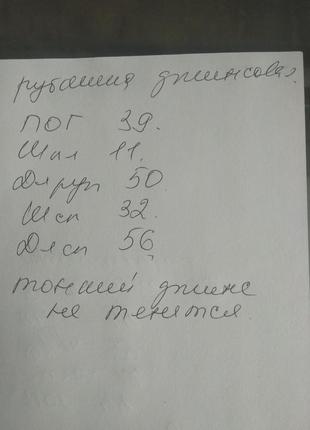 рубашка джинсовая.
ПОГ 39.
Шпл 11.
Дл рук 50
Шсп 32.
Длсп 56
тонкий джинс
не тянится.